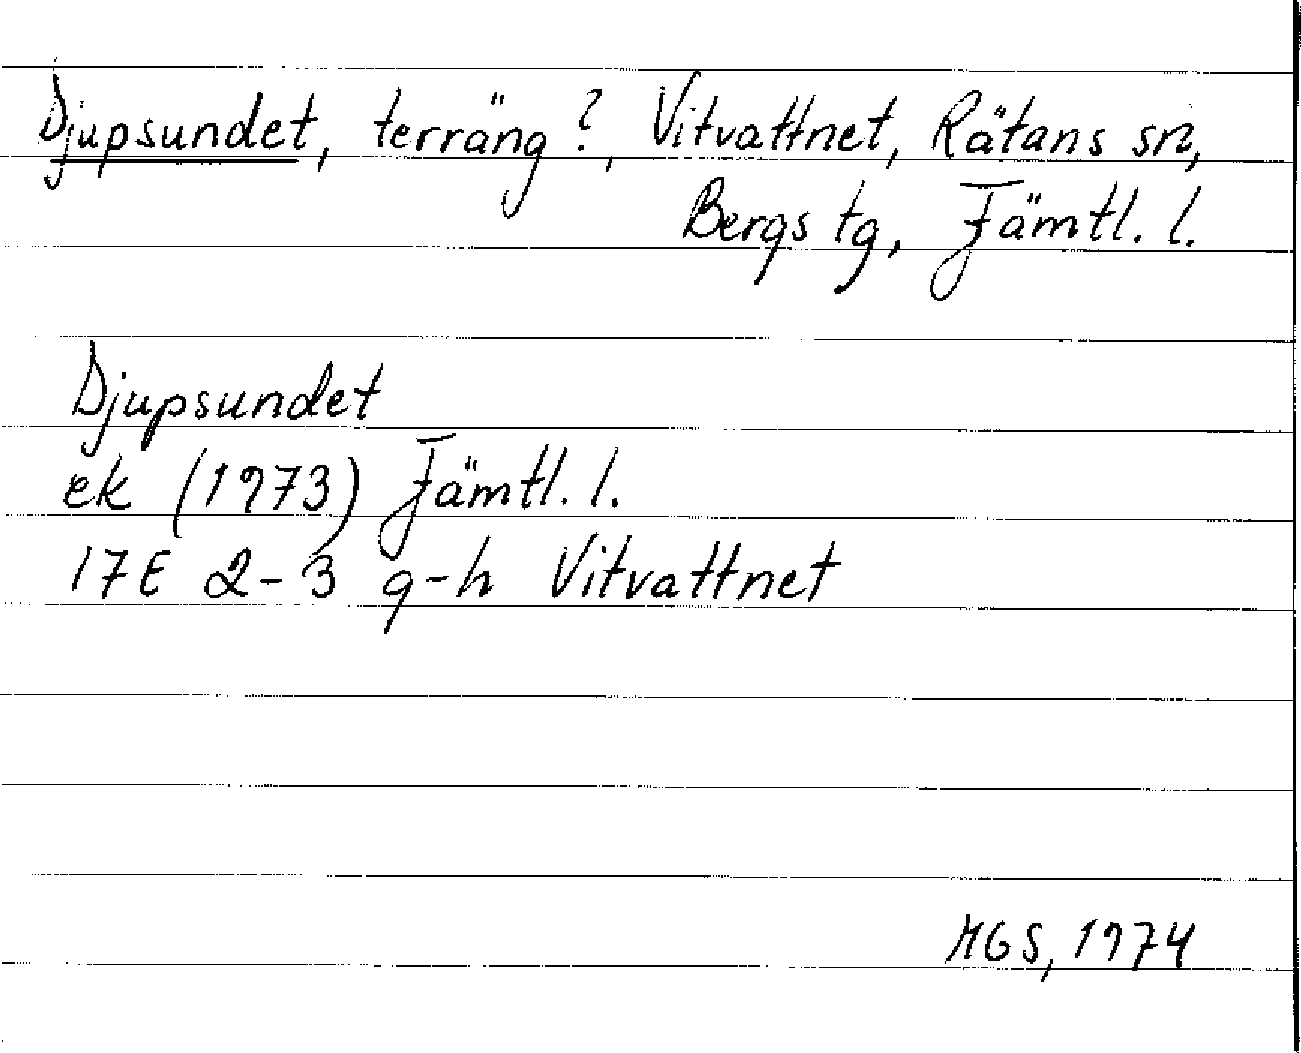 Djupsundet, terräng?, Vitvattnet, Rätans sn,
Bergs tg, Jämtl. l.
Djupsundet
ek (1973) Jämtl. l.
17E 2-3 g-h Vitvattnet
MGS, 1974